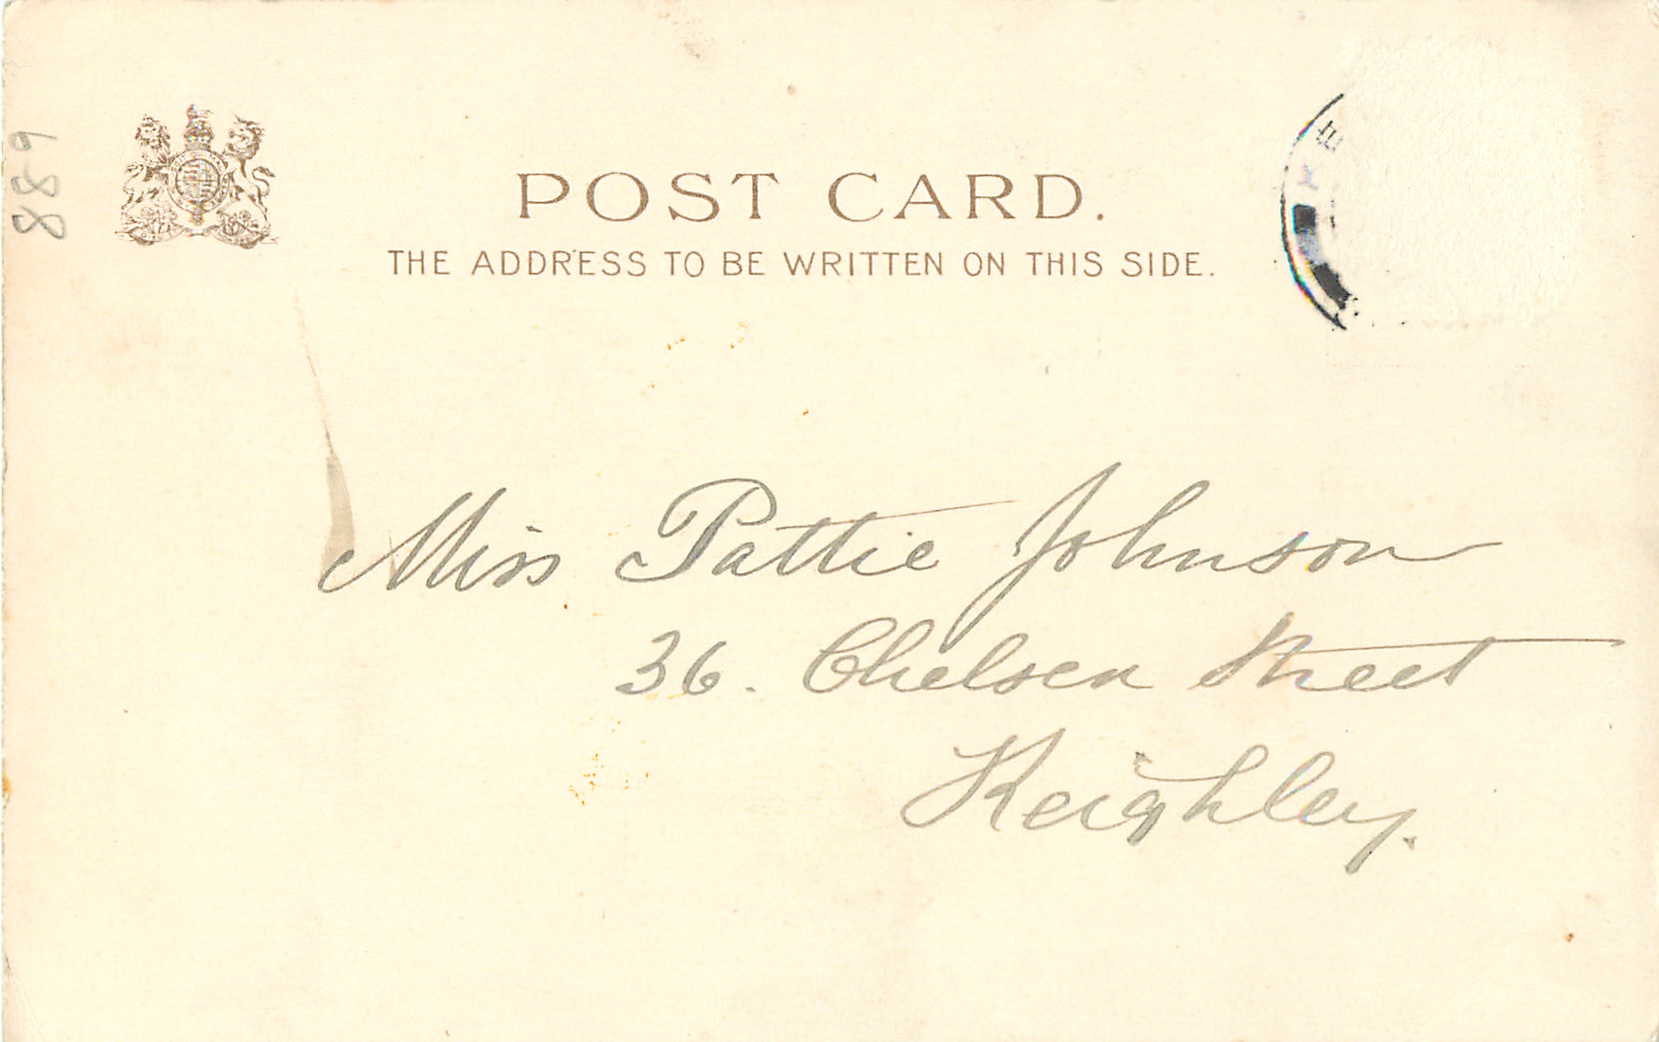 889
POST CARD.
THE ADDRESS TO BE WRITTEN ON THIS SIDE.
KE
Miss Pattie Johnson
36. Chelsea Street
Keighley.